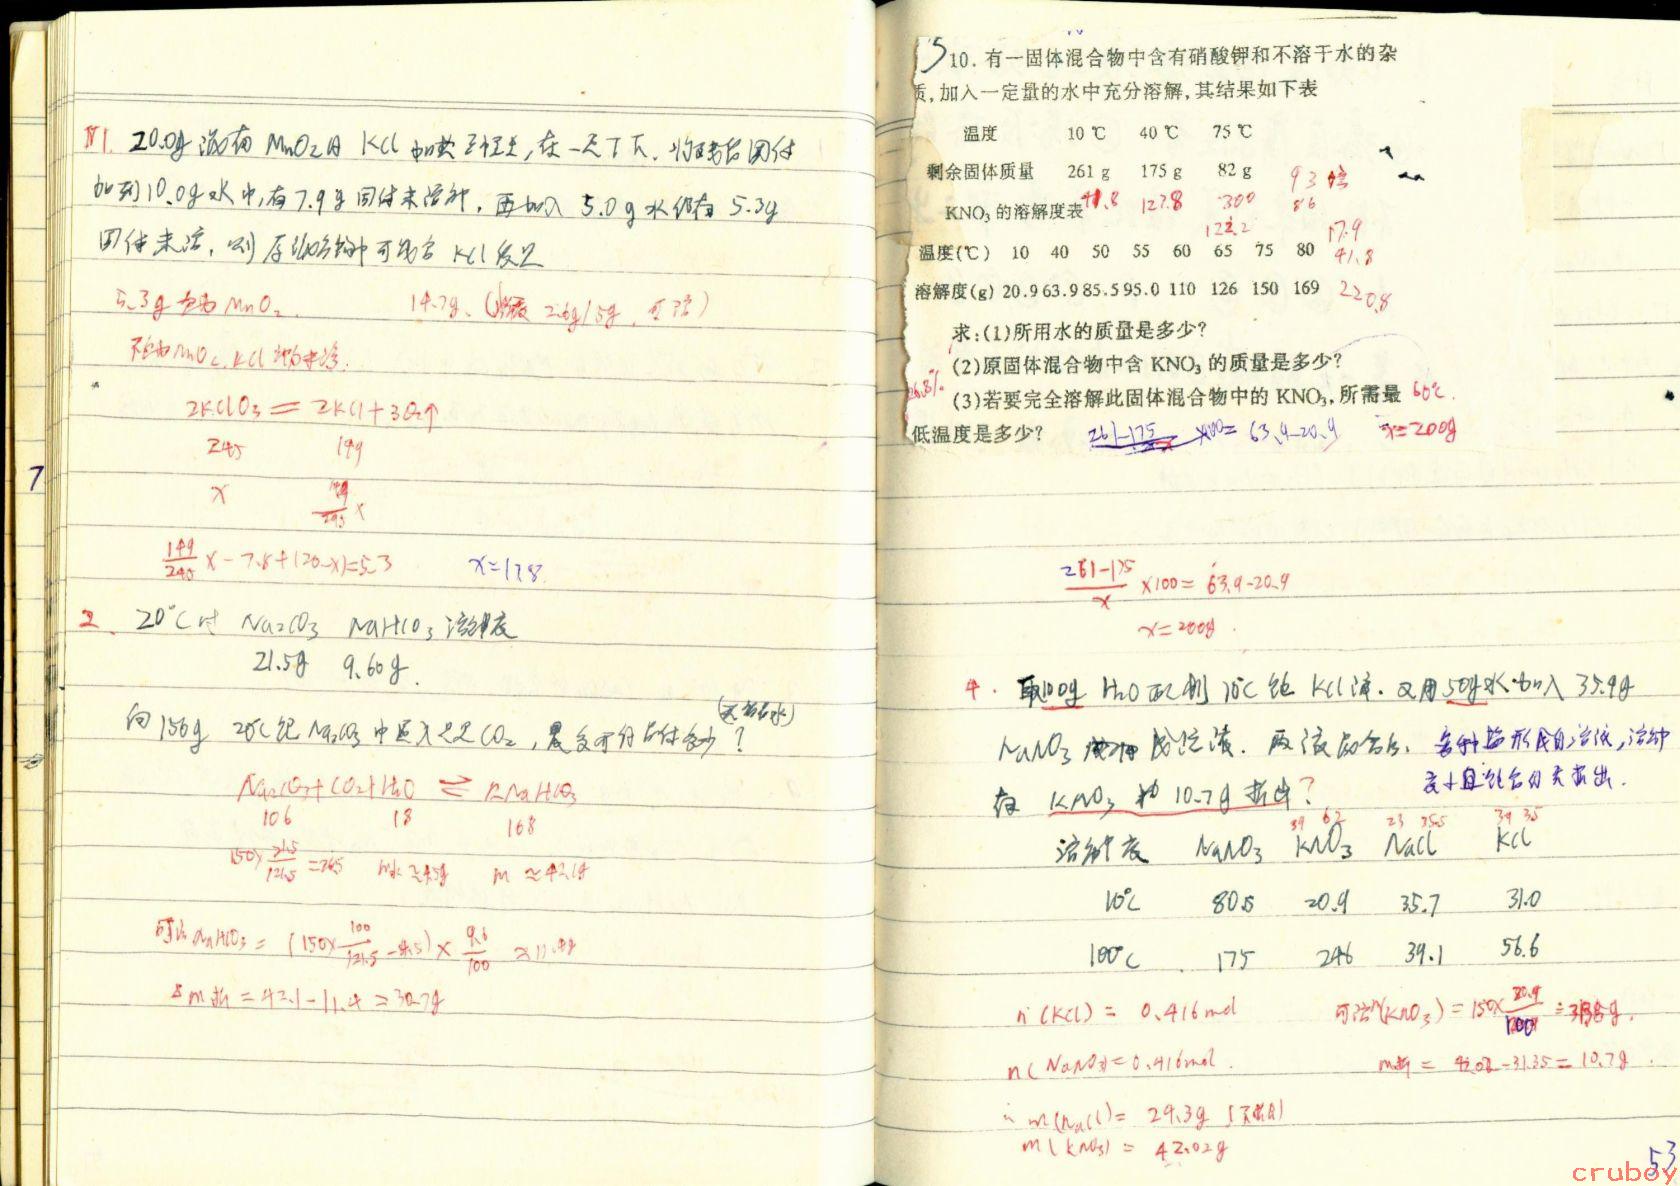 7
20.0g 混有 MnO₂的 KCl
加到10.0g水中,有7.9g固体未溶解,再加入 5.0g水仍有 5.3g
固体未溶,则原混合物中可能含 KCl
5.3g 全为MnO₂. 14.7g. 2.6g/5g
2KClO₃ = 2KCl+3O₂↑
245 149
x 149/245 x
149/245 x - 7.8+(20-x)=5.3 x=17.8
2. 20℃时 Na₂CO₃ NaHCO₃溶解度
21.5g 9.60g.
向150g 20℃饱Na₂CO₃中通入足足CO₂,最多可析出体多少?
Na₂CO₃+CO₂+H₂O ⇌ 2NaHCO₃
106 18 168
150×21.5/121.5=26.5 m水≈4.5g m≈42.1g
可溶NaHCO₃=(150×100/121.5-4.5)×9.6/100≈11.4g
m析=42.1-11.4=30.7g
10.有一固体混合物中含有硝酸钾和不溶于水的杂
质,加入一定量的水中充分溶解,其结果如下表
温度 10℃ 40℃ 75℃
剩余固体质量 261g 175g 82g 93
KNO₃的溶解度表 41.8 127.8 300 86
122.2 17.9
温度(℃) 10 40 50 55 60 65 75 80 41.8
溶解度(g) 20.9 63.9 85.5 95.0 110 126 150 169 220.8
求:(1)所用水的质量是多少?
(2)原固体混合物中含KNO₃的质量是多少?
(3)若要完全溶解此固体混合物中的KNO₃,所需最 60℃.
低温度是多少? 261-175 ×100=63.9-20.9 x=200g
261-175/x ×100=63.9-20.9
x=200g.
4. 取100g H₂O配制10℃饱KCl液.又用50g水加入35.4g
NaNO₃ 成溶液.两液混合后,各种盐形成自溶液,溶解
在 KNO₃ 10.7g析出?
39 62 23 35.5 39 35
溶解度 NaNO₃ KNO₃ NaCl KCl
10℃ 80.5 20.9 35.7 31.0
100℃ 175 246 39.1 56.6
n(KCl)=0.416mol 可溶m(KNO₃)=150×20.9/100
n(NaNO₃)=0.416mol. m析=42.02-31.35=10.7g.
m(NaCl)=24.3g
m(KNO₃)=42.02g
53
cruboy